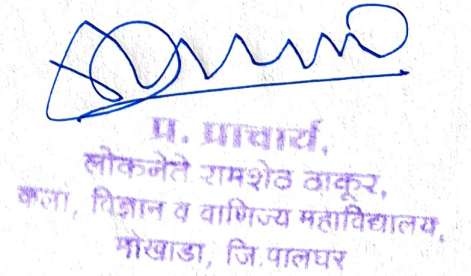 प्र. प्राचार्य,
लोकनेते रामशेठ ठाकूर,
कला, विज्ञान व वाणिज्य महाविद्यालय,
मोखाडा, जि.पालघर